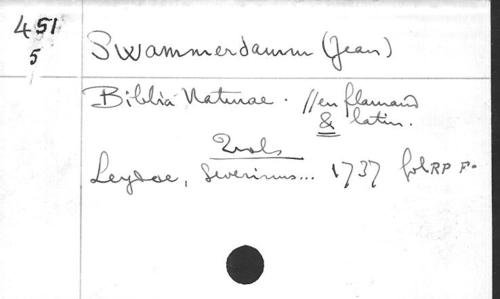 451
5
Swammerdamm (Jean)
Biblia Naturae. // en flamand
& latin.
2 vols
Leydae, Severinus... 1737 fol RP F.